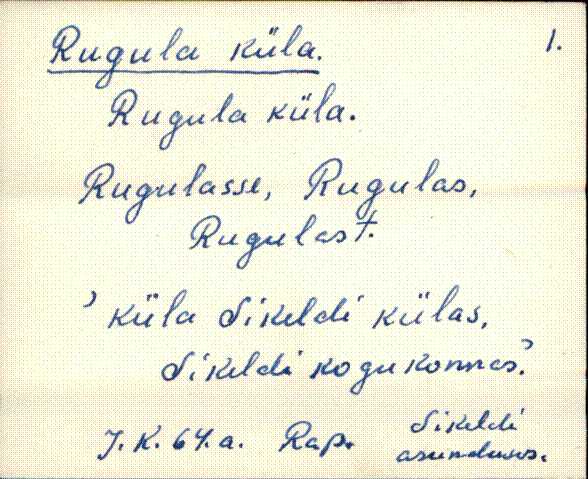 Rugula küla. 1.
Rugula küla.
Rugulasse, Rugulas,
Rugulast.
’küla Sikeldi külas,
Sikeldi kogukonnas’.
J. K. 64. a. Rap. Sikeldi
asunduses.